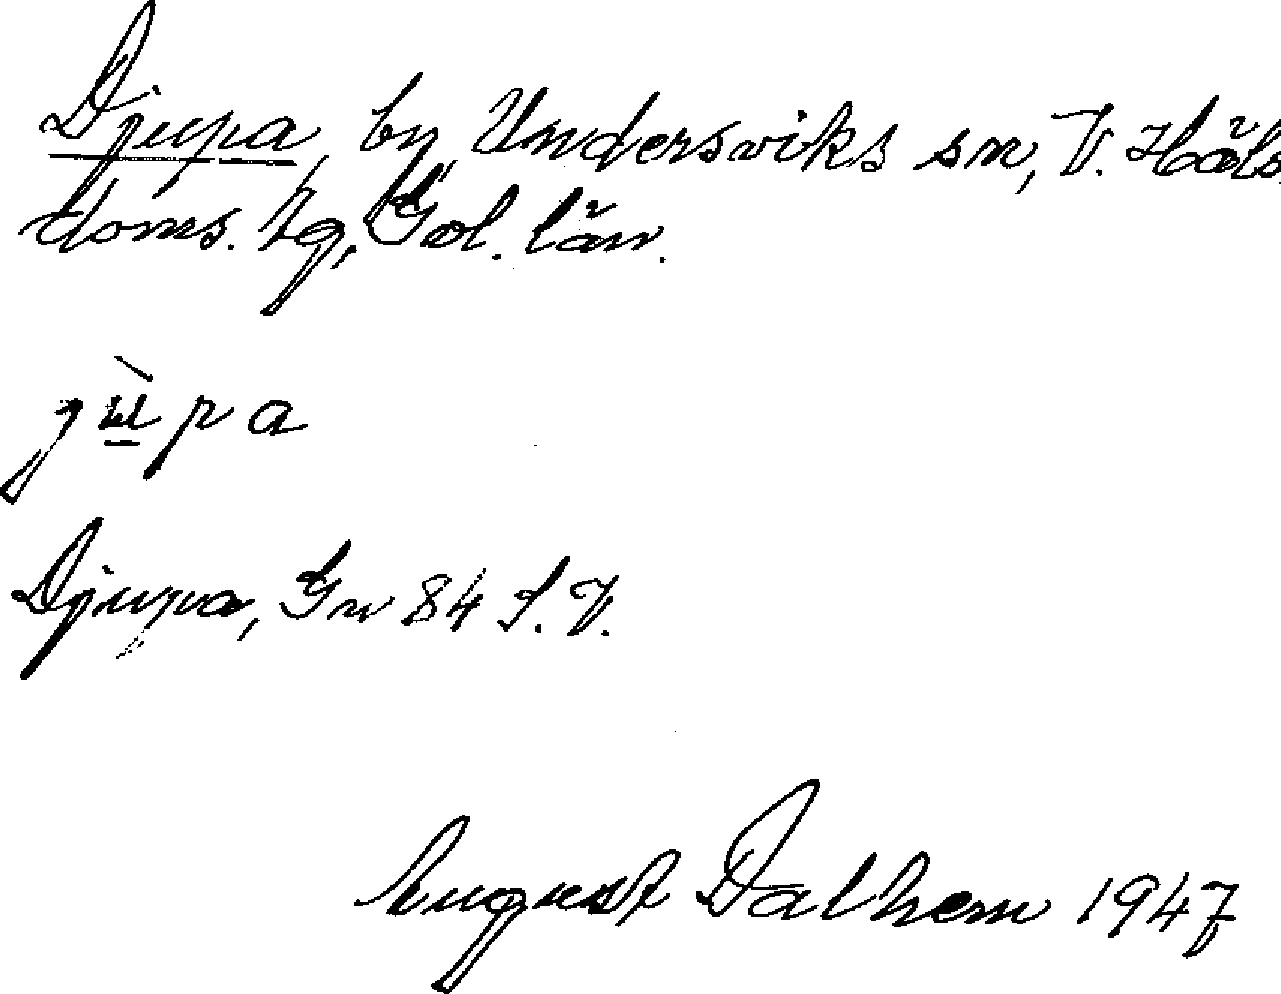 Djupa, by, Undersviks sn, V. Häls.
doms. tg, Gvl. län.
jùpa
Djupa, Gv 84 S. V.
August Dalhem 1947